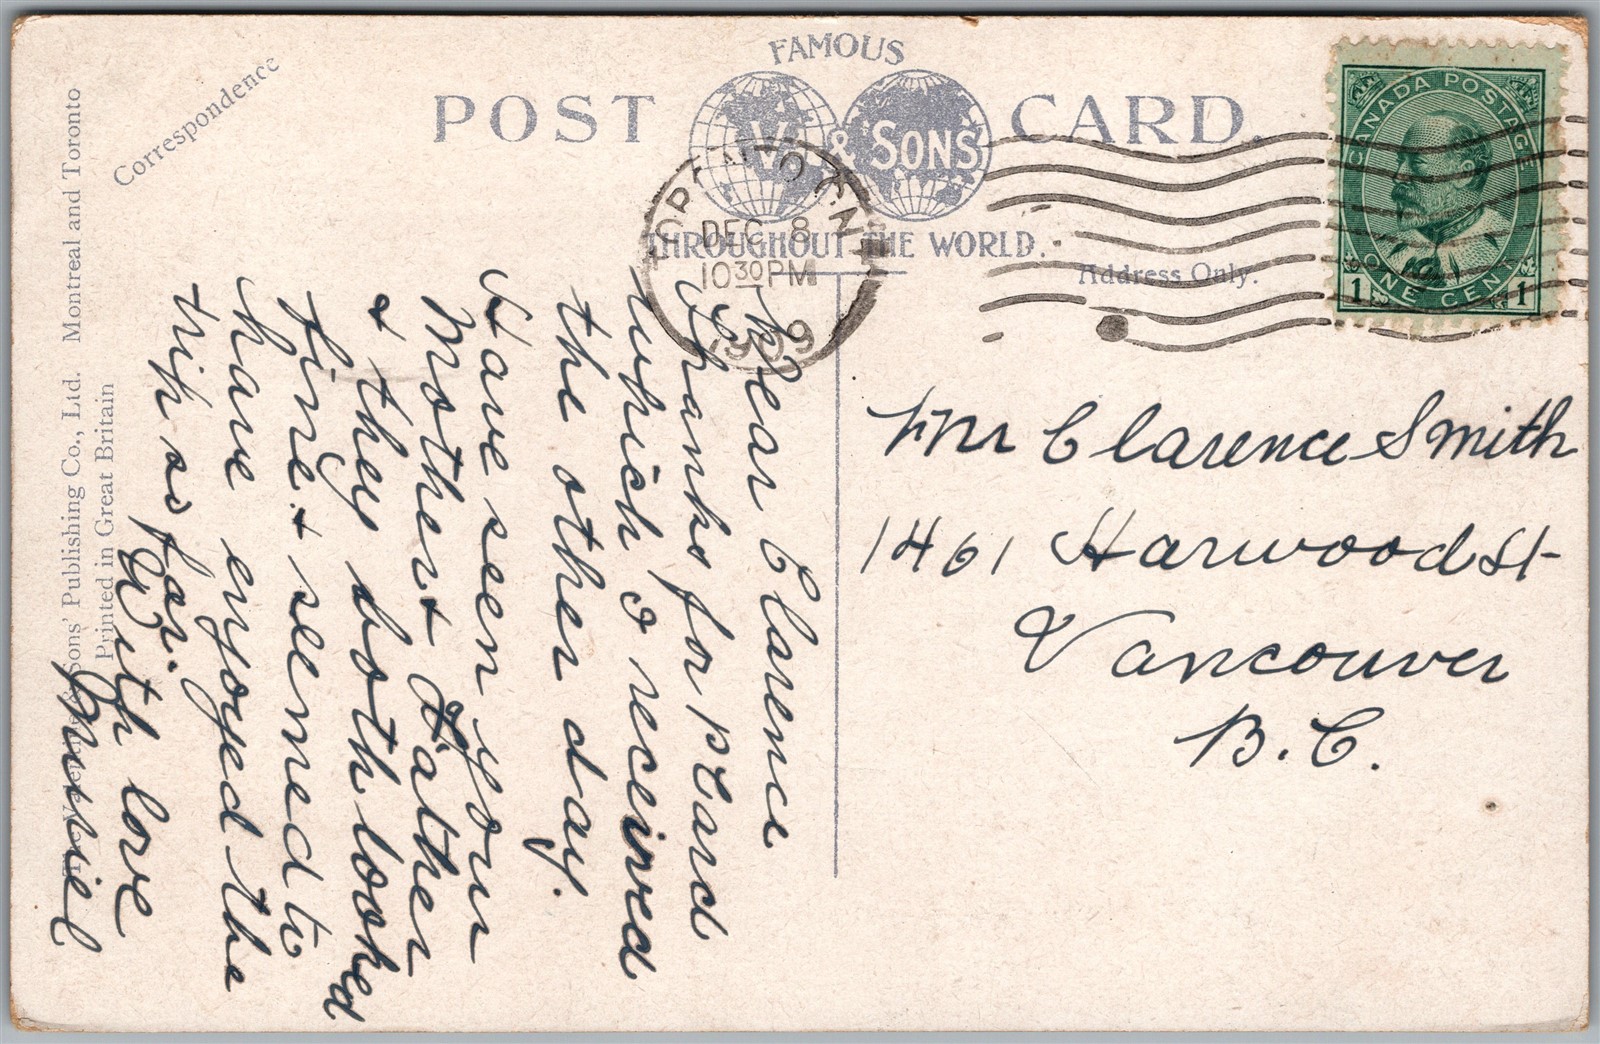 FAMOUS
POST V's & SONS' CARD.
THROUGHOUT THE WORLD.
Correspondence
Address Only.
Sons' Publishing Co., Ltd. Montreal and Toronto
Printed in Great Britain
TORONTO ONT
DEC 8
10 30 PM
1909
CANADA POSTAGE
1 ONE CENT 1
Dear Clarence
Thanks for pcard
which I received
the other day.
Have seen your
Mother & Father
& they both looked
fine & seemed to
have enjoyed the
trip so far.
With love
Muriel
Mr Clarence Smith
1461 Harwood St
Vancouver
B.C.